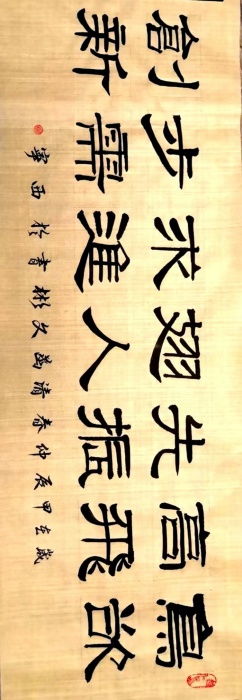 鳥欲
高飛
先振
翅人
求進
步需
創新
歲在甲辰仲春清文彬書於西寧